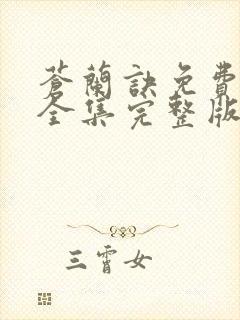 蒼蘭訣免費
全集完整版
三霄女